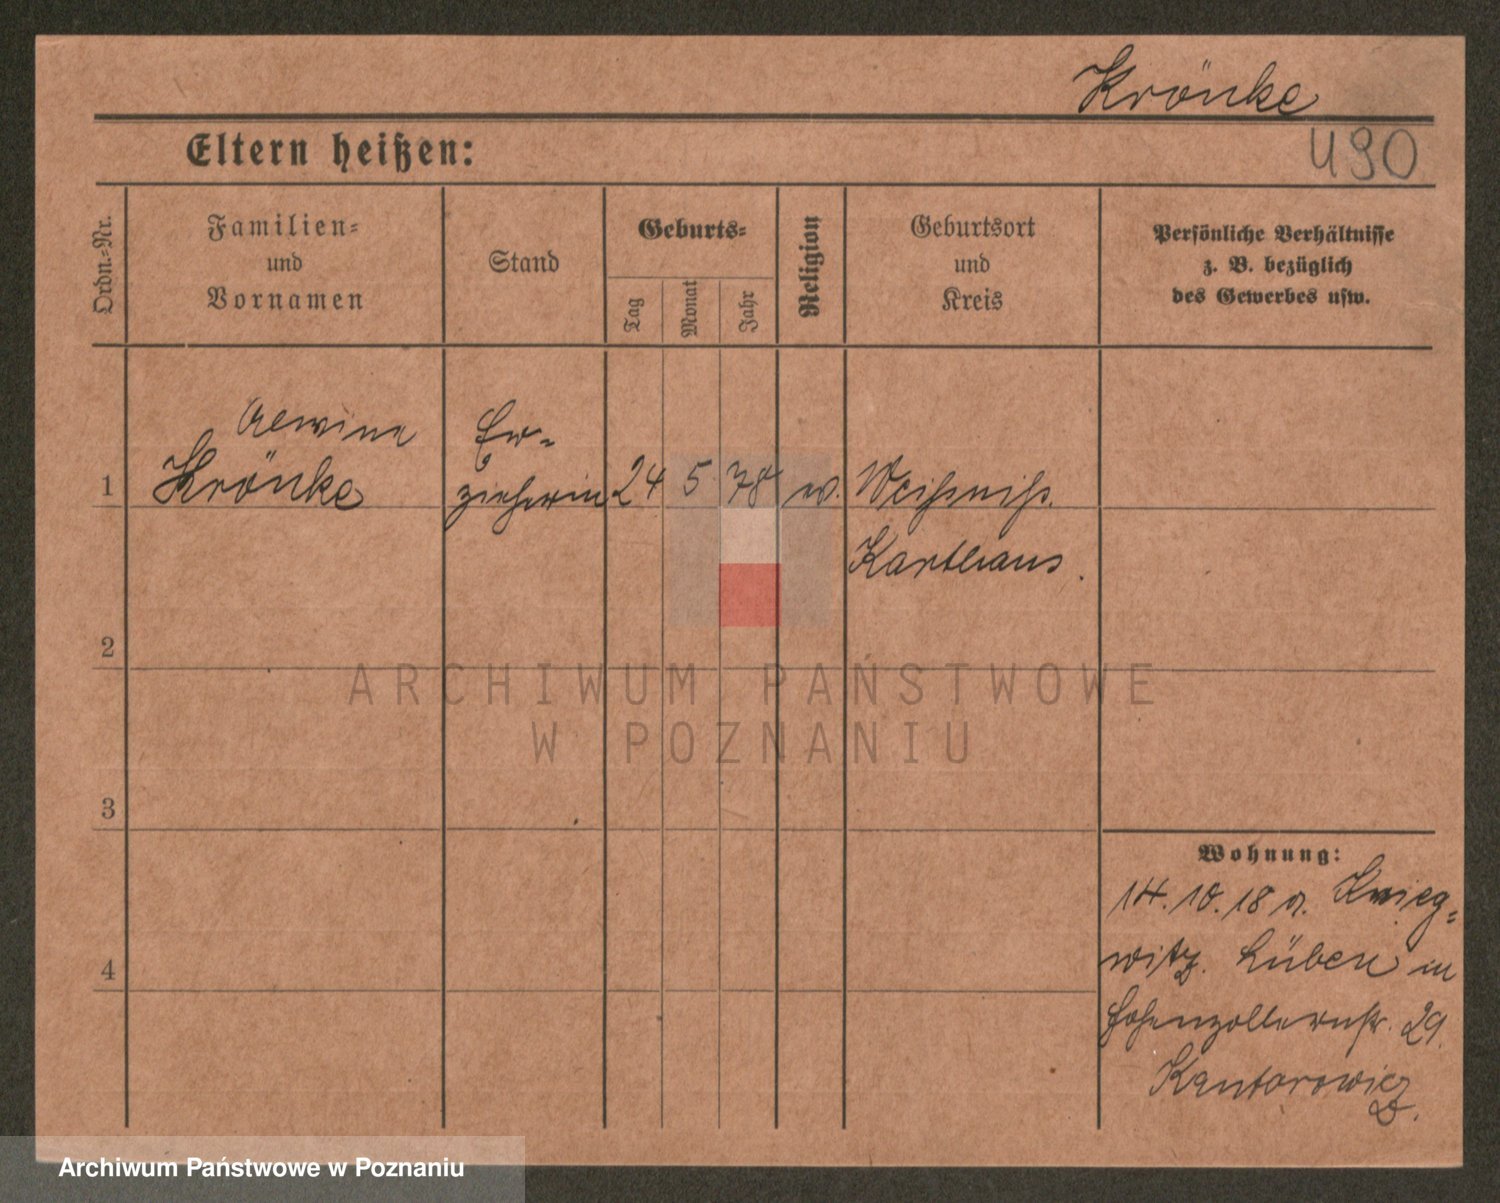 Krönke
Eltern heißen:
490
Ordn.-Nr.
Familien-
und
Vornamen
Stand
Geburts-
Tag
Monat
Jahr
Religion
Geburtsort
und
Kreis
Persönliche Verhältnisse
z. B. bezüglich
des Gewerbes usw.
Alwine
Krönke
Er-
zieherin
1
24
5
78
Karthaus.
2
3
4
ARCHIWUM PAŃSTWOWE
W POZNANIU
Wohnung:
14.10.18
witz. Lüben in
Hohenzollernstr. 29.
Kantorowicz
Archiwum Państwowe w Poznaniu